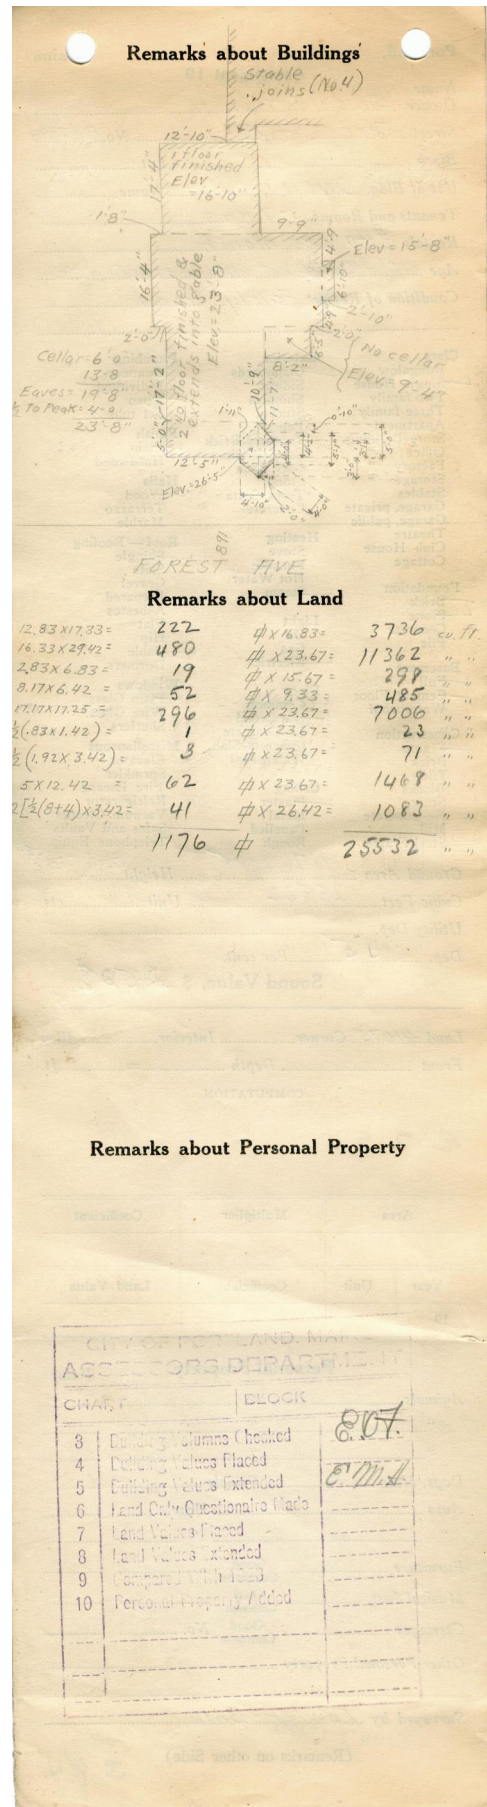 Remarks about Buildings
Stable
joins (No.4)
12'-10"
1 floor
finished
Elev
=16'-10"
17'-4"
1'-8"
9'-9"
4'-9
Elev=15'-8"
6'-10"
16'-4"
2 no floor finished &
extends into gable
Elev.=23'-8"
2'-10"
2'-0"
2'-0"
6'-5"
No cellar
Elev=9'-4"
Cellar=6'0
13-8
Eaves=19'-8"
½ To Peak=4-0
23'-8"
8'-2"
10'-9"
11'-7"
17'-2"
5'-0"
1'-11"
0'-10"
12'-5"
Elev.=26'-5"
4'-10"
2'-0"
4'-0"
5'-0"
168
FOREST AVE
Remarks about Land
12.83x17.33= 222 ⏀ x16.83= 3736 cu. ft.
16.33x29.42= 480 ⏀ x23.67= 11362 " "
2.83x6.83= 19 ⏀ x15.67= 298 " "
8.17x6.42 = 52 ⏀ x 9.33= 485 " "
17.17x17.25 = 296 ⏀ x 23.67= 7006 " "
½(.83x1.42)= 1 ⏀ x23.67= 23 " "
½(1.92x3.42)= 3 ⏀ x23.67= 71 " "
5x12.42 = 62 ⏀ x 23.67= 1468 " "
2[½(8+4)x3.42= 41 ⏀ x 26.42= 1083 " "
1176 ⏀ 25532 " "
Remarks about Personal Property
CITY OF PORTLAND, MAINE
ASSESSORS DEPARTMENT
CHART BLOCK
3 Building Volumns Checked E.O.F.
4 Building Values Placed
5 Building Values Extended E.M.A.
6 Land Only Questionaire Made
7 Land Values Placed
8 Land Values Extended
9 Compared With 1923
10 Personal Property Added